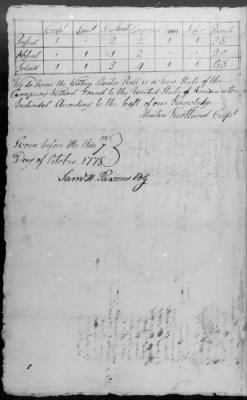 Capt Lieut Serjeant Corporals Drum Fifer Privates
Present 1 1 2 2 1 1 38
Absent 1 1 2 30
Total 1 1 3 4 1 1 68
We do Swear the Within Muster Roll is a True State of the
Company Without Fraud to the United States of America or to any
Individual According to the best of our Knowledge
Capt
Sworn before Me this 7th
Day of October 1778
Saml H. Parsons BG